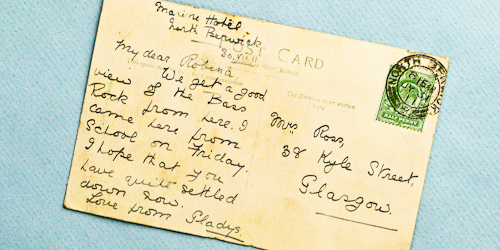 Marine Hotel
North Berwick
30.VII.11
POST CARD
My dear Robina,
We get a good
view of the Bass
Rock from here. I
came here from
School on Friday.
I hope that you
have quite settled
down now.
Love from Gladys.
Mrs Ross,
38 Kyle Street,
Glasgow.
NORTH BERWICK
HALFPENNY